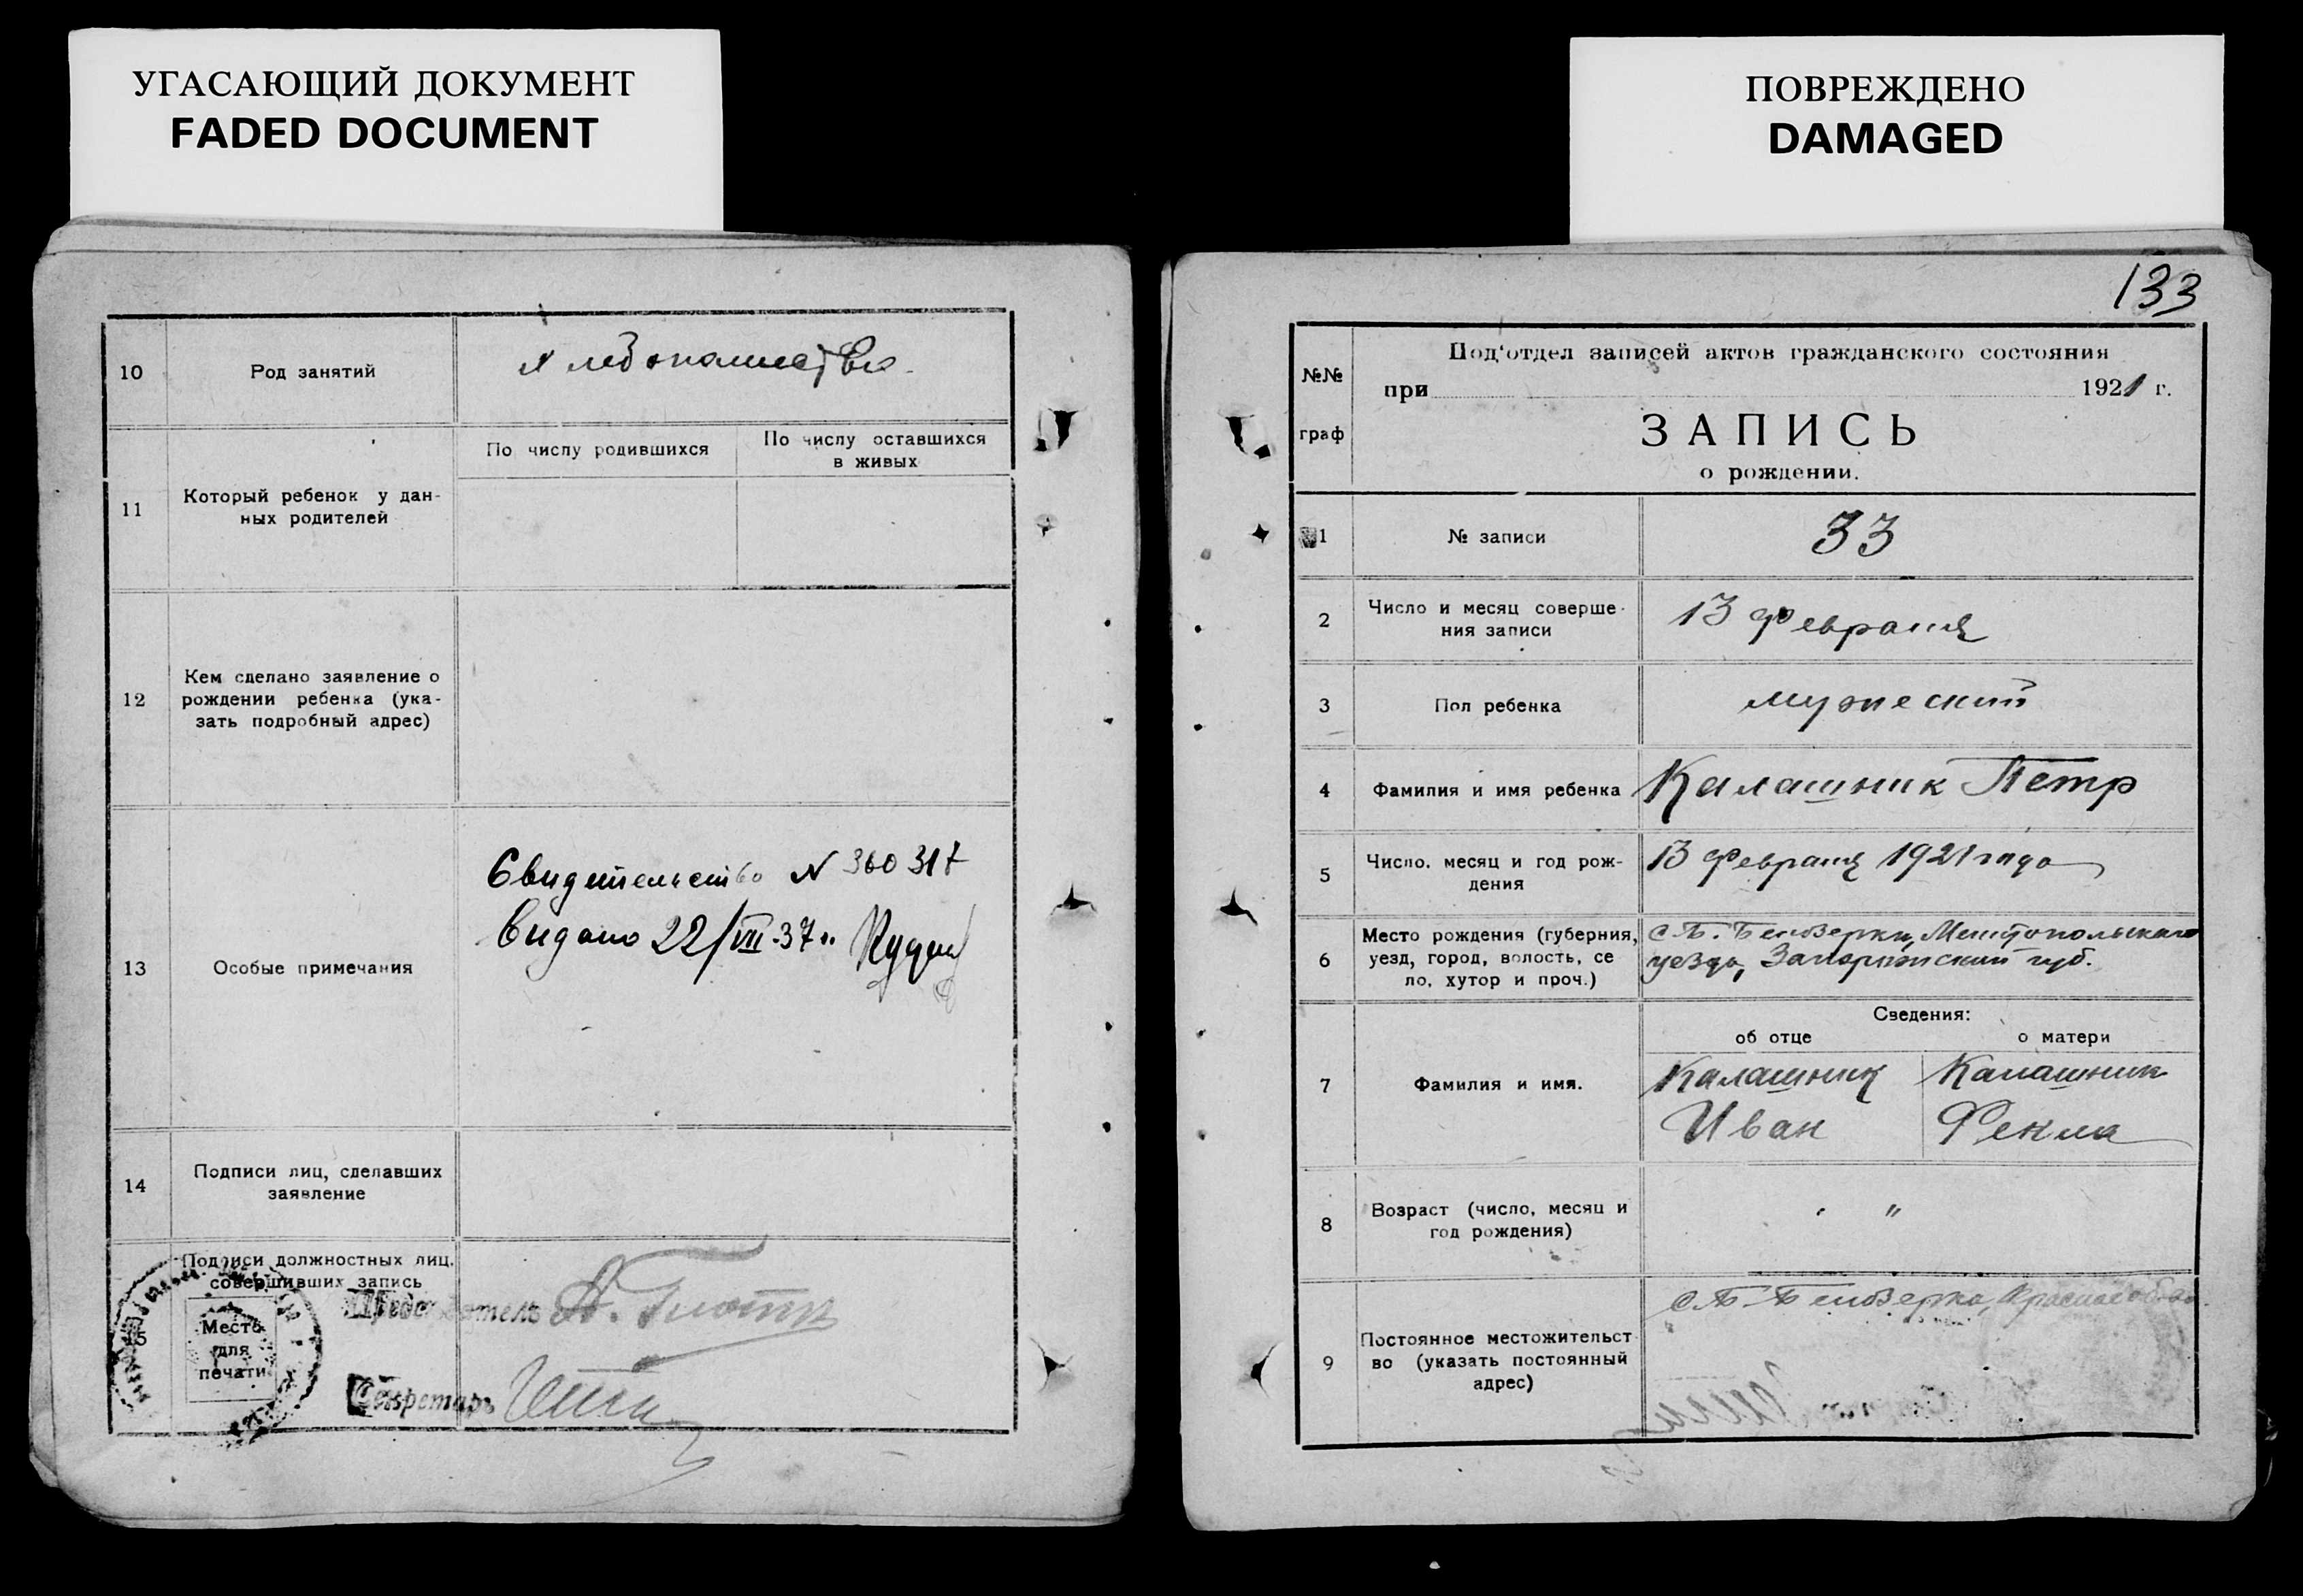 УГАСАЮЩИЙ ДОКУМЕНТ
FADED DOCUMENT
ПОВРЕЖДЕНО
DAMAGED
10
Род занятий
хлебопашество
11
Который ребенок у дан-
ных родителей
По числу родившихся
По числу оставшихся
в живых
12
Кем сделано заявление о
рождении ребенка (ука-
зать подробный адрес)
13
Особые примечания
Свидетельство N 360317
Видано 22/VII-37
14
Подписи лиц, сделавших
заявление
15
Подписи должностных лиц,
совершивших запись
Место
для
печати
Председатель
Секретарь
133
№№
граф
Под'отдел записей актов гражданского состояния
при 1921 г.
ЗАПИСЬ
о рождении.
1
№ записи
33
2
Число и месяц соверше-
ния записи
13 февраля
3
Пол ребенка
мужеский
4
Фамилия и имя ребенка
Калашник Петр
5
Число, месяц и год рож-
дения
13 февраля 1921 года
6
Место рождения (губерния,
уезд, город, волость, се
ло, хутор и проч.)
с Б. Белозерки, Мелитопольскаго
уезда, Запорожский губ.
Сведения:
об отце
о матери
7
Фамилия и имя.
Калашник
Иван
Калашник
Фекла
8
Возраст (число, месяц и
год рождения)
"
9
Постоянное местожительст
во (указать постоянный
адрес)
с Б-Белозерка,